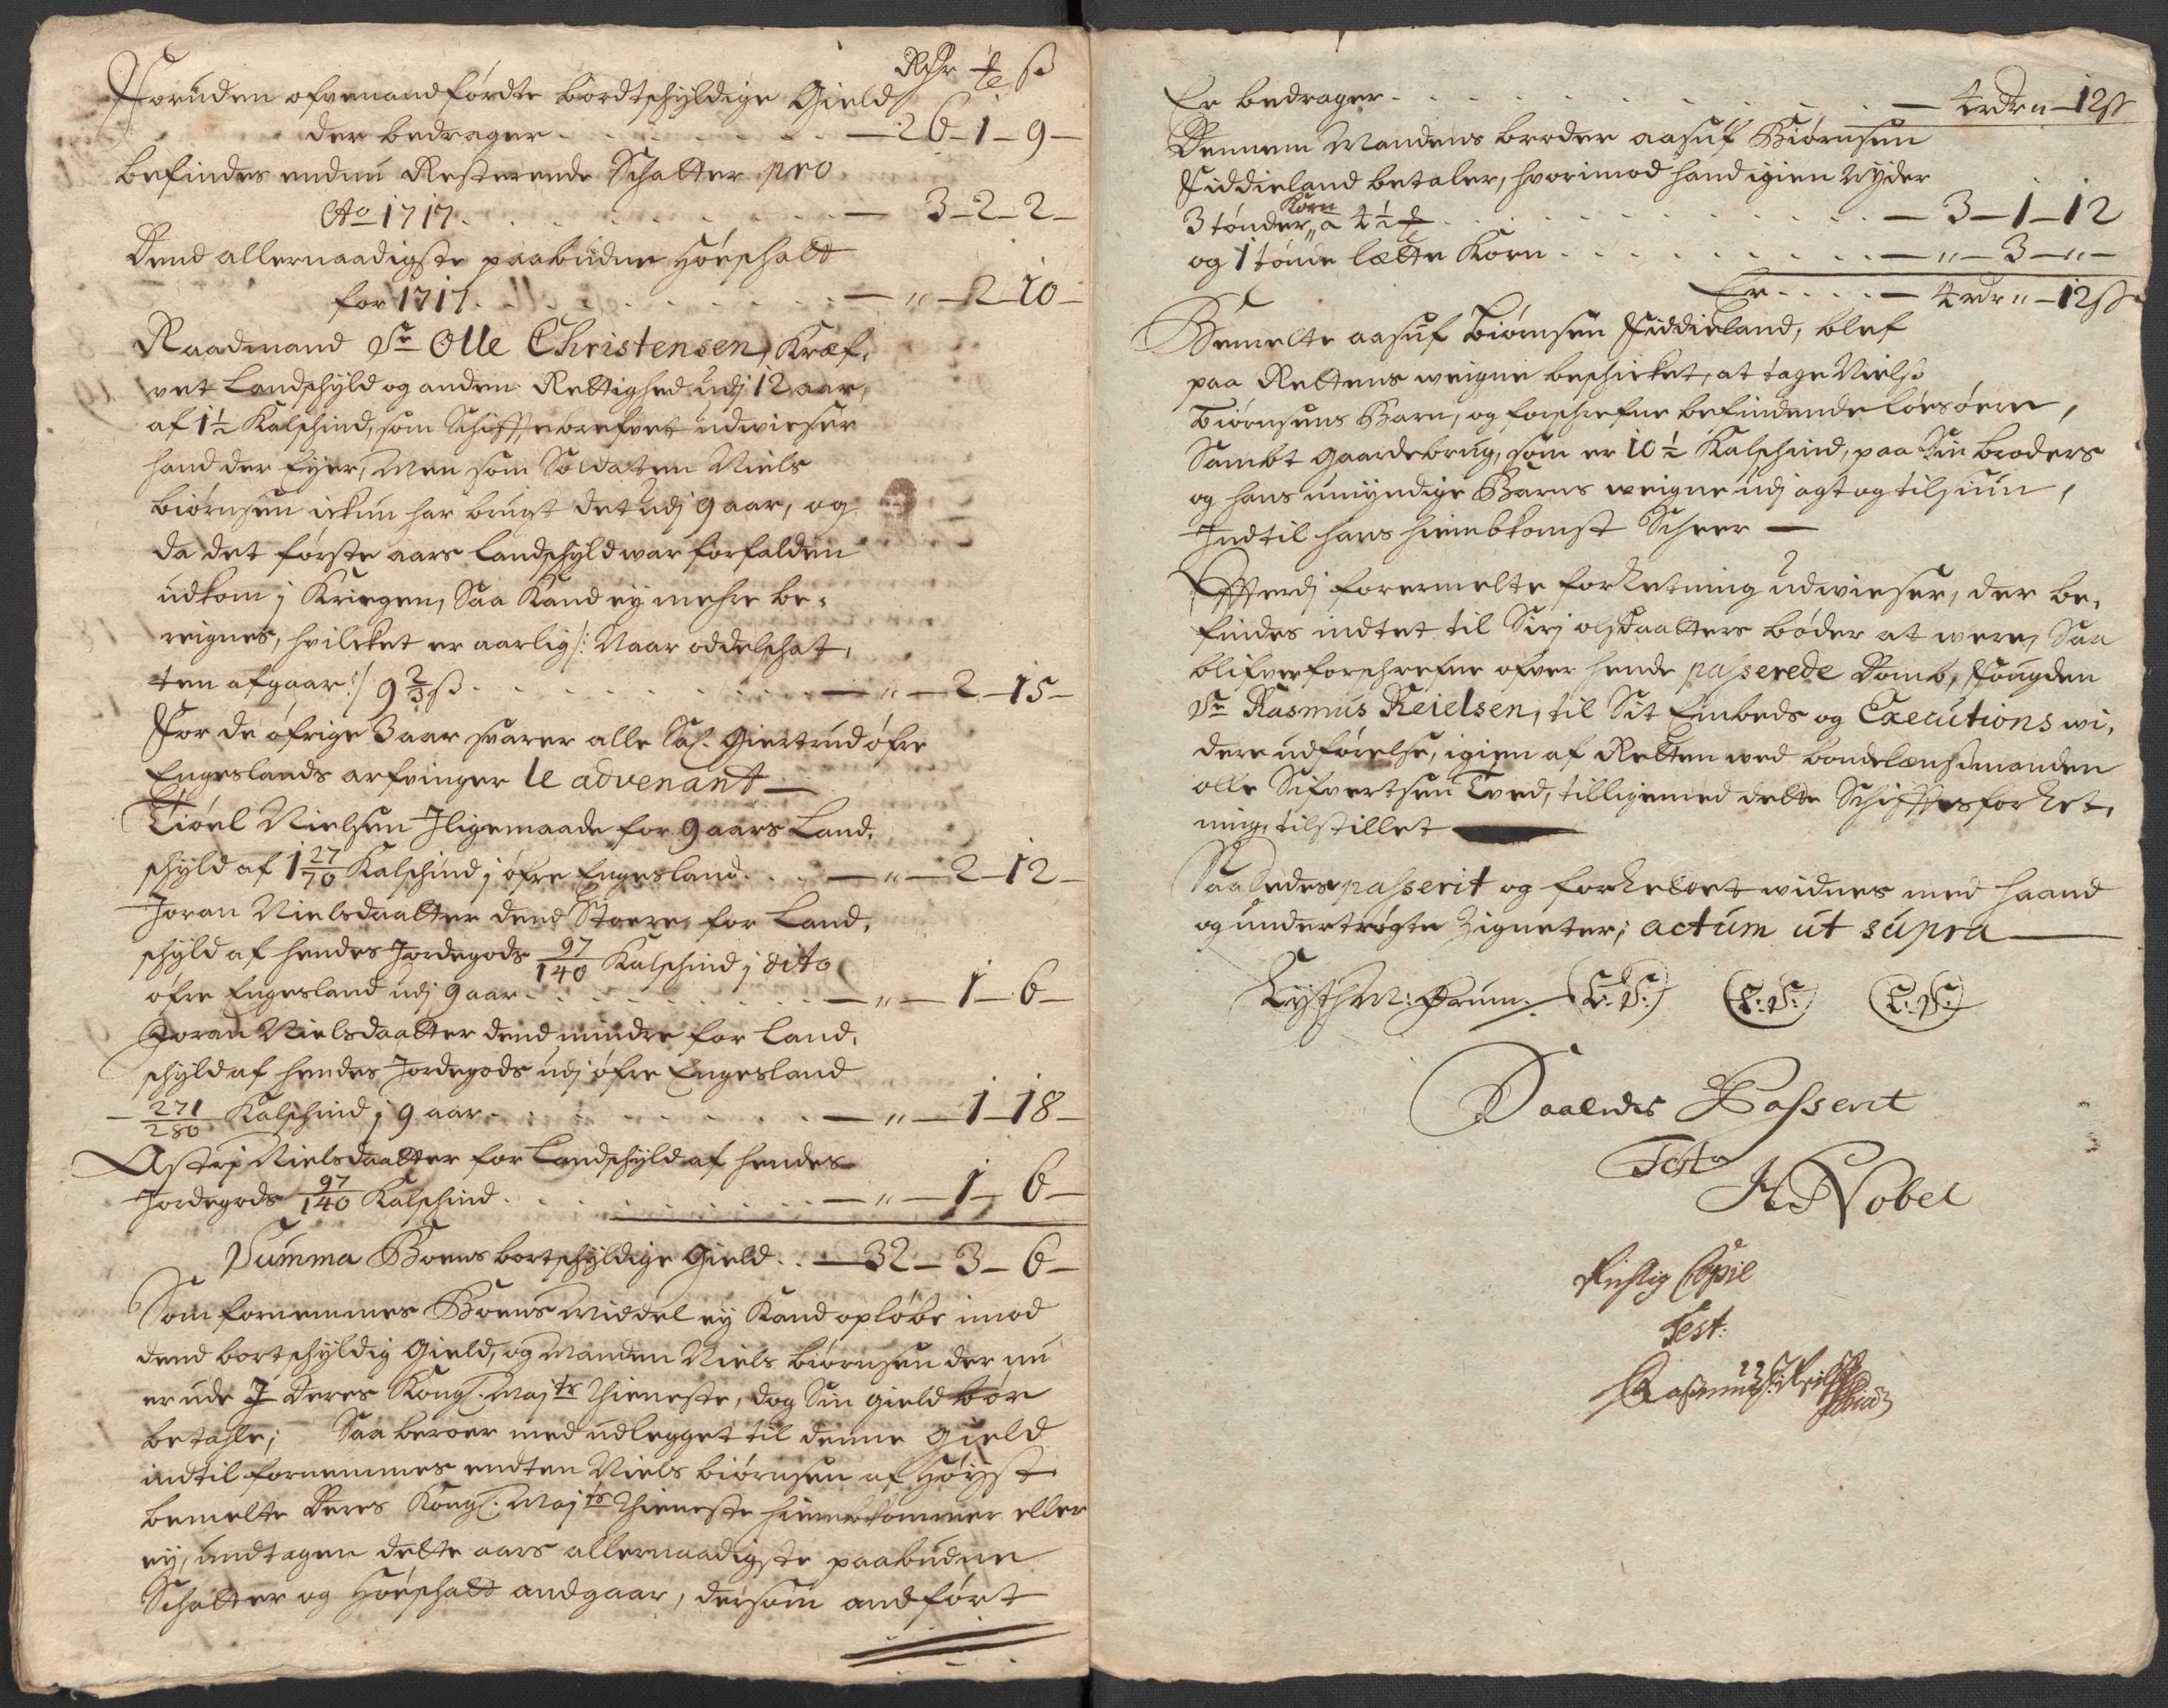 Rdr ƶ ß
Foruden ofvenandførdte bordtschyldige Gield
der bedrager . . . . . . — 26 – 1 – 9 –
befindes endnu Resterende Schatter pro
Ao 1717 . . . . . . — 3 – 2 – 2 –
Dend allernaadigste paabudne Hoeschatt
for 1717 . . . . . . — „ – 2 – 10 –
Raadmand Sr Olle Christensen, Kræf,
vet Landschyld og anden Rettighed udj 12 aar,
af 1½ Kalschind, som Schifftebrefvet udwieser
hand der Eyer, Men som Soldaten Niels
biørnsen ickun har brugt det udj 9 aar, og
da det første aars Landschyld war forfalden
udkom j Kriegen, Saa Kand ey mehre be,
reignes, hvilcket er aarlig /: Naar oddelschat,
ten afgaar :/ 9 2/3 ß . . . . . . — „ – 2 – 15 –
For de øfrige 3 aar svarer alle Sal. Giertrud øfre
Engeslands arfvinger le advenant —
Tiøel Nielsen Jligemaade for 9 aars Land,
schyld af 1 27/70 Kalschind j øfre Engesland . . — „ – 2 – 12 –
Joran Nielsdaatter dend Støere, for Land,
schyld af hendes Jordegods 97/140 Kalschind j dito
øfre Engesland udj 9 aar . . . . . — „ – 1 – 6 –
Joran Nielsdaatter dend mindre for Land,
schyld af hendes Jordegods udj øfre Engesland
– 271/280 Kalschind j 9 aar . . . . . — „ – 1 – 18 –
Astrj Nielsdaatter for Landschyld af hendes
Jordegods 97/140 Kalschind . . . . . — „ – 1 – 6 –
Summa Boens bortschyldige Gield . . — 32 – 3 – 6 –
Som fornemmes Boens Middel ey Kand opløbe imod
dend bortschyldig Gield, og Manden Niels biørnsen der nu
er ude J Deres Kongl. Majts Thieneste, dog Sin gield bør
betahle; Saa beroer med udlegget til denne Gield
indtil fornemmes endten Niels biørnsen af Høyst
bemelte Deres Kongl. Majts Thieneste hiembkommer eller
ey, undtagen dette aars allernaadigste paabudne
Schatter og Hoeschatt andgaar, dersom andført
Er bedrager . . . . . . — 4 rdr „ – 12 ß
Dennem Mandens broder aasuf Biørnsen
Fiddieland betaler, hvorimod hand igien Nyder
3 tønder Korn â 4½ ƶ . . . . . . — 3 – 1 – 12
og 1 tønde lætte Korn . . . . . . — „ – 3 – „ –
Er . . . . — 4 rdr „ – 12 ß
Bemelte aasuf Biørnsen Fiddieland, blef
paa Rettens weigne beschicket, at tage Niels
Biørnsens Barn, og forschrefne befindende løesøere,
Sambt gaardebrug, som er 10½ Kalschind, paa Sin broders
og hans umyndige Barns weigne udj agt og tilsiun,
Indtil hans hiembkomst Scheer —
Efterdj formelte forRetning udwieser, der be,
findes indtet til Sirj olsdaatters bøder at were, Saa
blifver forschrefne ofver hende passerede Domb, Fougden
Sr Rasmus Reielsen, til Sit Embeds og Executions wi,
dere udførelse, igien af Retten ved bondelænsmanden
olle Sifvertsen Tved, tilligemed dette Schifftesforret,
ning, tilstillet —
Saaledes passerit og forRettet widnes med haand
og undertrøgte Zigneter; actum ut supra —
M: Prum. (L: S:) (L: S:) (L: S:)
Saaledes Passerit
Testor
H Nobel
Richtig Copie
Test:
Rasmus Reielsen